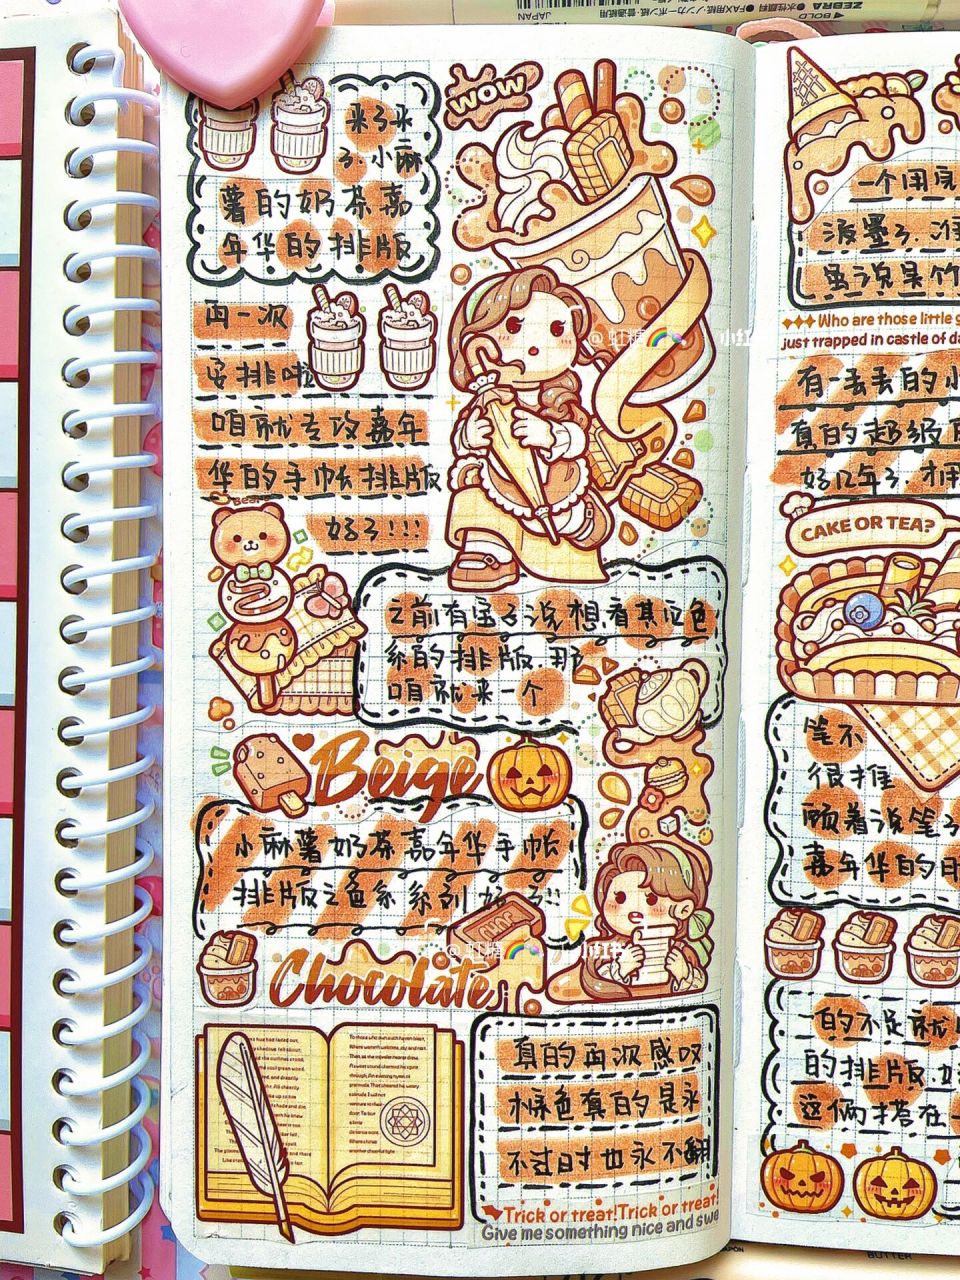 ZEBRA
BOLD
JAPAN
来了来
了.小麻
薯的奶茶嘉
年华的排版
WOW
再一次
安排啦
咱就主攻嘉年
华的手帐排版
好了!!!
Bear
之前有宝子说想看其它色
系的排版.那
咱就来一个
Beige
小麻薯奶茶嘉年华手帐
排版之色系系列好了!!
CHOC
Chocolate
真的再次感叹
棕色真的是永
不过时也永不翻
Trick or treat!Trick or treat!
Give me something nice and swe
@虹糖
小红书
@虹糖
小红书
一个用完
没墨了.
虽说是竹
Who are those little g
just trapped in castle of da
有一丢丢的小
真的超级
好几年了.才用
CAKE OR TEA?
笔不
很推
顾着说笔了
嘉年华的
一的不足就
的排版
这俩搭在
BUTTER